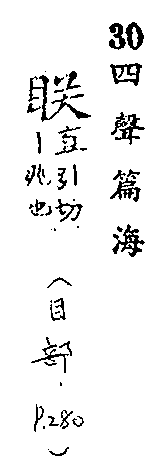 30 四聲篇海
眹
直引切
丨兆也
(目部. P.280)